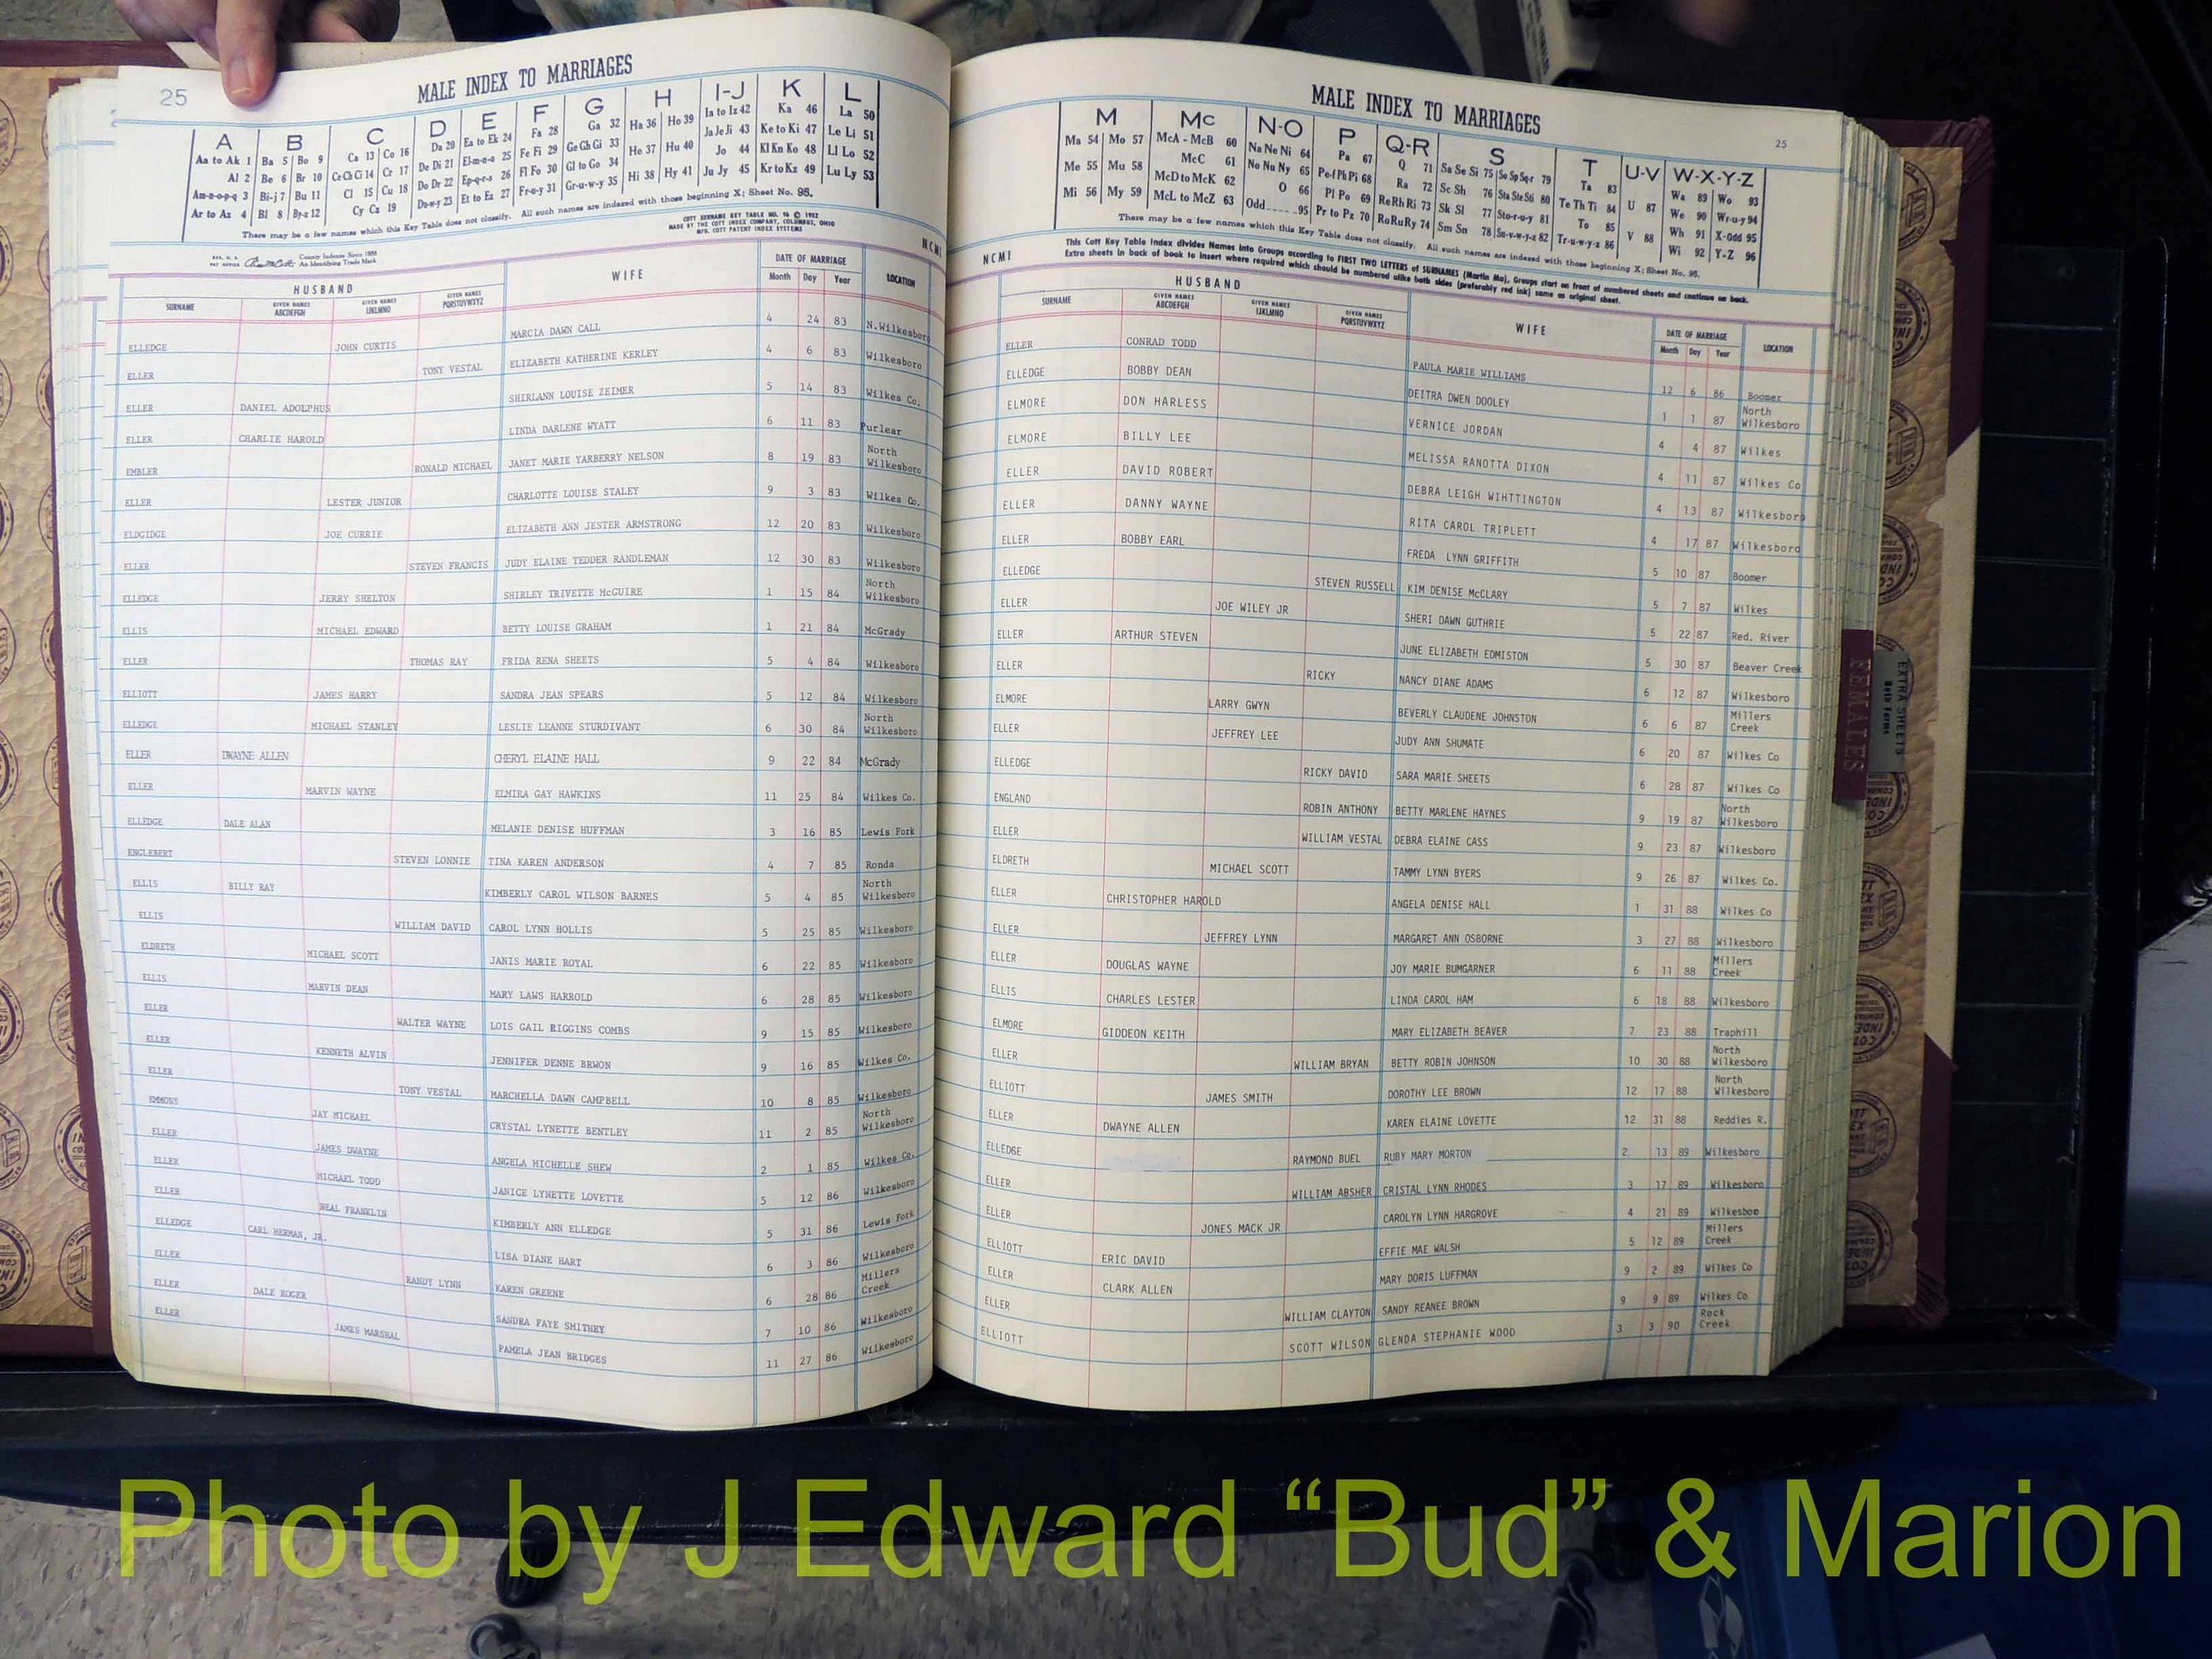 25
MALE INDEX TO MARRIAGES
A B C D E F G H I-J K L
Aa to Ak 1 Ba 5 Bo 9 Ca 13 Co 16 Da 20 Ea to Ek 24 Fa 28 Ga 32 Ha 36 Ho 39 Ia to Iz 42 Ka 46 La 50
Al 2 Be 6 Br 10 Ce Ch Ci 14 Cr 17 De Di 21 El-m-n-o 25 Fe Fi 29 Ge Gh Gi 33 He 37 Hu 40 Ja Je Ji 43 Ke to Ki 47 Le Li 51
Am-n-o-p-q 3 Bi-j 7 Bu 11 Cl 15 Cu 18 Do Dr 22 Ep-q-r-s 26 Fl Fo 30 Gl to Go 34 Hi 38 Hy 41 Jo 44 Kl Kn Ko 48 Ll Lo 52
Ar to Az 4 Bl 8 By-z 12 Cy Cz 19 Du-w-y 23 Et to Ez 27 Fr-u-y 31 Gr-u-w-y 35 Ju Jy 45 Kr to Kz 49 Lu Ly 53
There may be a few names which this Key Table does not classify. All such names are indexed with those beginning X; Sheet No. 95.
COTT SURNAME KEY TABLE NO. 96 © 1952
MADE BY THE COTT INDEX COMPANY, COLUMBUS, OHIO
MFG. COTT PATENT INDEX SYSTEMS
County Indexes Since 1888
An Identifying Trade Mark
NCMI
HUSBAND WIFE DATE OF MARRIAGE LOCATION
SURNAME GIVEN NAMES ABCDEFGH GIVEN NAMES IJKLMNO GIVEN NAMES PQRSTUVWXYZ Month Day Year
ELLEDGE JOHN CURTIS MARCIA DAWN CALL 4 24 83 N.Wilkesboro
ELLER TONY VESTAL ELIZABETH KATHERINE KERLEY 4 6 83 Wilkesboro
ELLER DANIEL ADOLPHUS SHIRLANN LOUISE ZEIMER 5 14 83 Wilkes Co.
ELLER CHARLIE HAROLD LINDA DARLENE WYATT 6 11 83 Purlear
EMBLER RONALD MICHAEL JANET MARIE YARBERRY NELSON 8 19 83 North Wilkesboro
ELLER LESTER JUNIOR CHARLOTTE LOUISE STALEY 9 3 83 Wilkes Co.
ELDGIDGE JOE CURRIE ELIZABETH ANN JESTER ARMSTRONG 12 20 83 Wilkesboro
ELLER STEVEN FRANCIS JUDY ELAINE TEDDER RANDLEMAN 12 30 83 Wilkesboro
ELLEDGE JERRY SHELTON SHIRLEY TRIVETTE McGUIRE 1 15 84 North Wilkesboro
ELLIS MICHAEL EDWARD BETTY LOUISE GRAHAM 1 21 84 McGrady
ELLER THOMAS RAY FRIDA RENA SHEETS 5 4 84 Wilkesboro
ELLIOTT JAMES HARRY SANDRA JEAN SPEARS 5 12 84 Wilkesboro
ELLEDGE MICHAEL STANLEY LESLIE LEANNE STURDIVANT 6 30 84 North Wilkesboro
ELLER DWAYNE ALLEN CHERYL ELAINE HALL 9 22 84 McGrady
ELLER MARVIN WAYNE ELMIRA GAY HAWKINS 11 25 84 Wilkes Co.
ELLEDGE DALE ALAN MELANIE DENISE HUFFMAN 3 16 85 Lewis Fork
ENGLEBERT STEVEN LONNIE TINA KAREN ANDERSON 4 7 85 Ronda
ELLIS BILLY RAY KIMBERLY CAROL WILSON BARNES 5 4 85 North Wilkesboro
ELLIS WILLIAM DAVID CAROL LYNN HOLLIS 5 25 85 Wilkesboro
ELDRETH MICHAEL SCOTT JANIS MARIE ROYAL 6 22 85 Wilkesboro
ELLIS MARVIN DEAN MARY LAWS HARROLD 6 28 85 Wilkesboro
ELLER WALTER WAYNE LOIS GAIL RIGGINS COMBS 9 15 85 Wilkesboro
ELLER KENNETH ALVIN JENNIFER DENNE BRWON 9 16 85 Wilkes Co.
ELLER TONY VESTAL MARCHELLA DAWN CAMPBELL 10 8 85 Wilkesboro
EMMONS JAY MICHAEL CRYSTAL LYNETTE BENTLEY 11 2 85 North Wilkesboro
ELLER JAMES DWAYNE ANGELA MICHELLE SHEW 2 1 85 Wilkes Co.
ELLER MICHAEL TODD JANICE LYNETTE LOVETTE 5 12 86 Wilkesboro
ELLER NEAL FRANKLIN KIMBERLY ANN ELLEDGE 5 31 86 Lewis Fork
ELLEDGE CARL HERMAN, JR. LISA DIANE HART 6 3 86 Wilkesboro
ELLER RANDY LYNN KAREN GREENE 6 28 86 Millers Creek
ELLER DALE ROGER SANDRA FAYE SMITHEY 7 10 86 Wilkesboro
ELLER JAMES MARSHAL PAMELA JEAN BRIDGES 11 27 86 Wilkesboro
MALE INDEX TO MARRIAGES
25
M Mc N-O P Q-R S T U-V W-X-Y-Z
Ma 54 Mo 57 McA - McB 60 Na Ne Ni 64 Pa 67 Q 71 Sa Se Si 75 So Sp Sq-r 79 Ta 83 Wa 89 Wo 93
Me 55 Mu 58 McC 61 No Nu Ny 65 Pe-f Ph Pi 68 Ra 72 Sc Sh 76 Sta Ste Sti 80 Te Th Ti 84 U 87 We 90 Wr-u-y 94
Mi 56 My 59 McD to McK 62 O 66 Pl Po 69 Re Rh Ri 73 Sk Sl 77 Sto-r-u-y 81 To 85 Wh 91 X-Odd 95
McL to McZ 63 Odd 95 Pr to Pz 70 Ro Ru Ry 74 Sm Sn 78 Su-v-w-y-z 82 Tr-u-w-y-z 86 V 88 Wi 92 Y-Z 96
There may be a few names which this Key Table does not classify. All such names are indexed with those beginning X; Sheet No. 95.
This Cott Key Table Index divides Names into Groups according to FIRST TWO LETTERS of SURNAMES (Martin Ma), Groups start on front of numbered sheets and continue on back.
Extra sheets in back of book to insert where required which should be numbered alike both sides (preferably red ink) same as original sheet.
NCMI
HUSBAND WIFE DATE OF MARRIAGE LOCATION
SURNAME GIVEN NAMES ABCDEFGH GIVEN NAMES IJKLMNO GIVEN NAMES PQRSTUVWXYZ Month Day Year
ELLER CONRAD TODD PAULA MARIE WILLIAMS 12 6 86 Boomer
ELLEDGE BOBBY DEAN DEITRA DWEN DOOLEY 1 1 87 North Wilkesboro
ELMORE DON HARLESS VERNICE JORDAN 4 4 87 Wilkes
ELMORE BILLY LEE MELISSA RANOTTA DIXON 4 11 87 Wilkes Co
ELLER DAVID ROBERT DEBRA LEIGH WIHTTINGTON 4 13 87 Wilkesboro
ELLER DANNY WAYNE RITA CAROL TRIPLETT 4 17 87 Wilkesboro
ELLER BOBBY EARL FREDA LYNN GRIFFITH 5 10 87 Boomer
ELLEDGE STEVEN RUSSELL KIM DENISE McCLARY 5 7 87 Wilkes
ELLER JOE WILEY JR SHERI DAWN GUTHRIE 5 22 87 Red. River
ELLER ARTHUR STEVEN JUNE ELIZABETH EDMISTON 5 30 87 Beaver Creek
ELLER RICKY NANCY DIANE ADAMS 6 12 87 Wilkesboro
ELMORE LARRY GWYN BEVERLY CLAUDENE JOHNSTON 6 6 87 Millers Creek
ELLER JEFFREY LEE JUDY ANN SHUMATE 6 20 87 Wilkes Co
ELLEDGE RICKY DAVID SARA MARIE SHEETS 6 28 87 Wilkes Co
ENGLAND ROBIN ANTHONY BETTY MARLENE HAYNES 9 19 87 North Wilkesboro
ELLER WILLIAM VESTAL DEBRA ELAINE CASS 9 23 87 Wilkesboro
ELDRETH MICHAEL SCOTT TAMMY LYNN BYERS 9 26 87 Wilkes Co.
ELLER CHRISTOPHER HAROLD ANGELA DENISE HALL 1 31 88 Wilkes Co
ELLER JEFFREY LYNN MARGARET ANN OSBORNE 3 27 88 Wilkesboro
ELLER DOUGLAS WAYNE JOY MARIE BUMGARNER 6 11 88 Millers Creek
ELLIS CHARLES LESTER LINDA CAROL HAM 6 18 88 Wilkesboro
ELMORE GIDDEON KEITH MARY ELIZABETH BEAVER 7 23 88 Traphill
ELLER WILLIAM BRYAN BETTY ROBIN JOHNSON 10 30 88 North Wilkesboro
ELLIOTT JAMES SMITH DOROTHY LEE BROWN 12 17 88 North Wilkesboro
ELLER DWAYNE ALLEN KAREN ELAINE LOVETTE 12 31 88 Reddies R.
ELLEDGE RAYMOND BUEL RUBY MARY MORTON 2 13 89 Wilkesboro
ELLER WILLIAM ABSHER CRISTAL LYNN RHODES 3 17 89 Wilkesboro
ELLER JONES MACK JR CAROLYN LYNN HARGROVE 4 21 89 Wilkesboo
ELLIOTT ERIC DAVID EFFIE MAE WALSH 5 12 89 Millers Creek
ELLER CLARK ALLEN MARY DORIS LUFFMAN 9 2 89 Wilkes Co
ELLER WILLIAM CLAYTON SANDY REANEE BROWN 9 9 89 Wilkes Co
ELLIOTT SCOTT WILSON GLENDA STEPHANIE WOOD 3 3 90 Rock Creek
FEMALES
EXTRA SHEETS
Both Forms
Photo by J Edward “Bud” & Marion